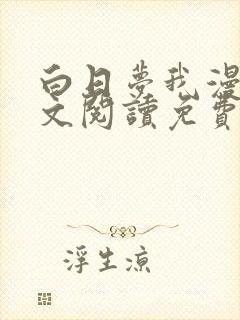 白日夢我漫
文閱讀免費
浮生涼